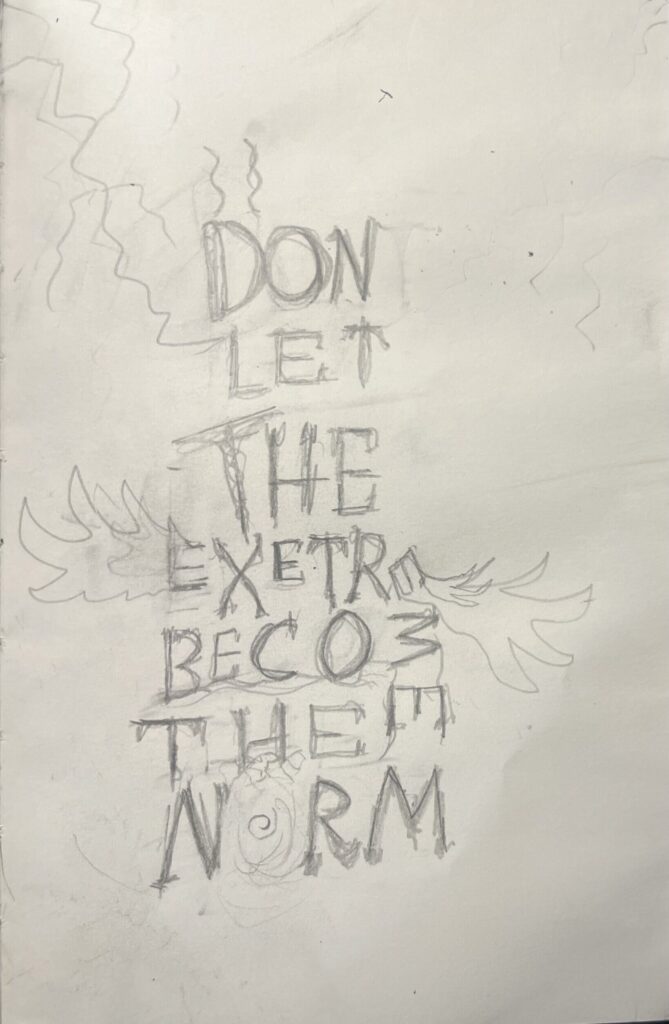 DONT
LET
THE
EXETREME
BECOME
THE
NORM